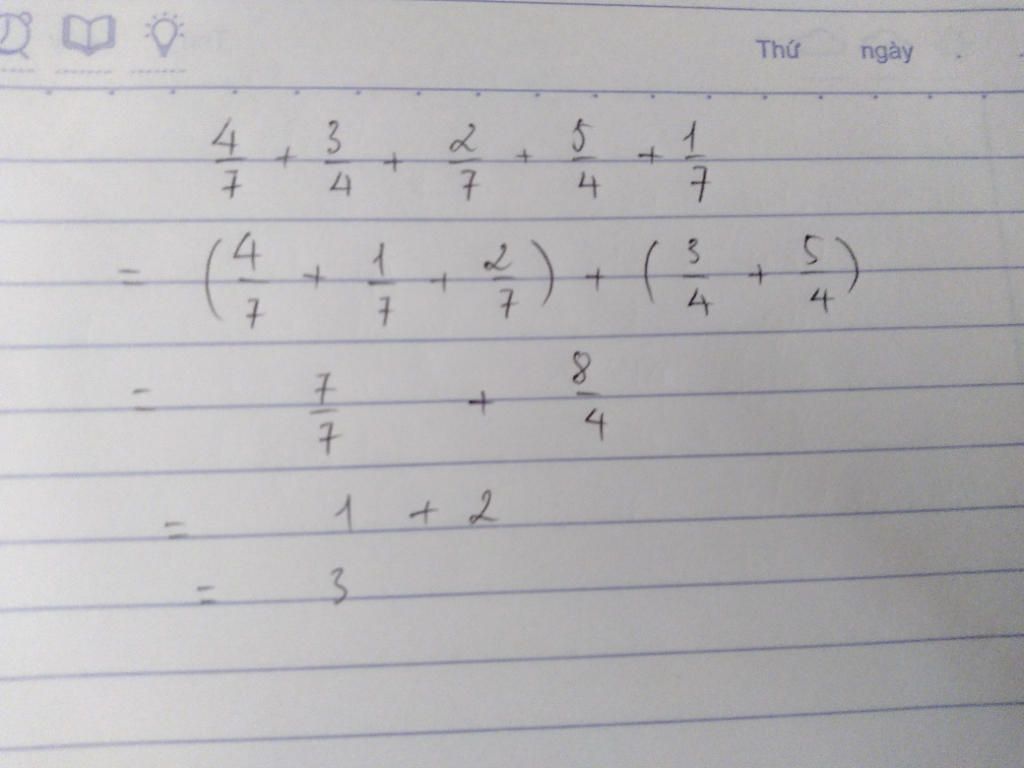 Thứ ngày . .
4/7 + 3/4 + 2/7 + 5/4 + 1/7
= (4/7 + 1/7 + 2/7) + (3/4 + 5/4)
= 7/7 + 8/4
= 1 + 2
= 3